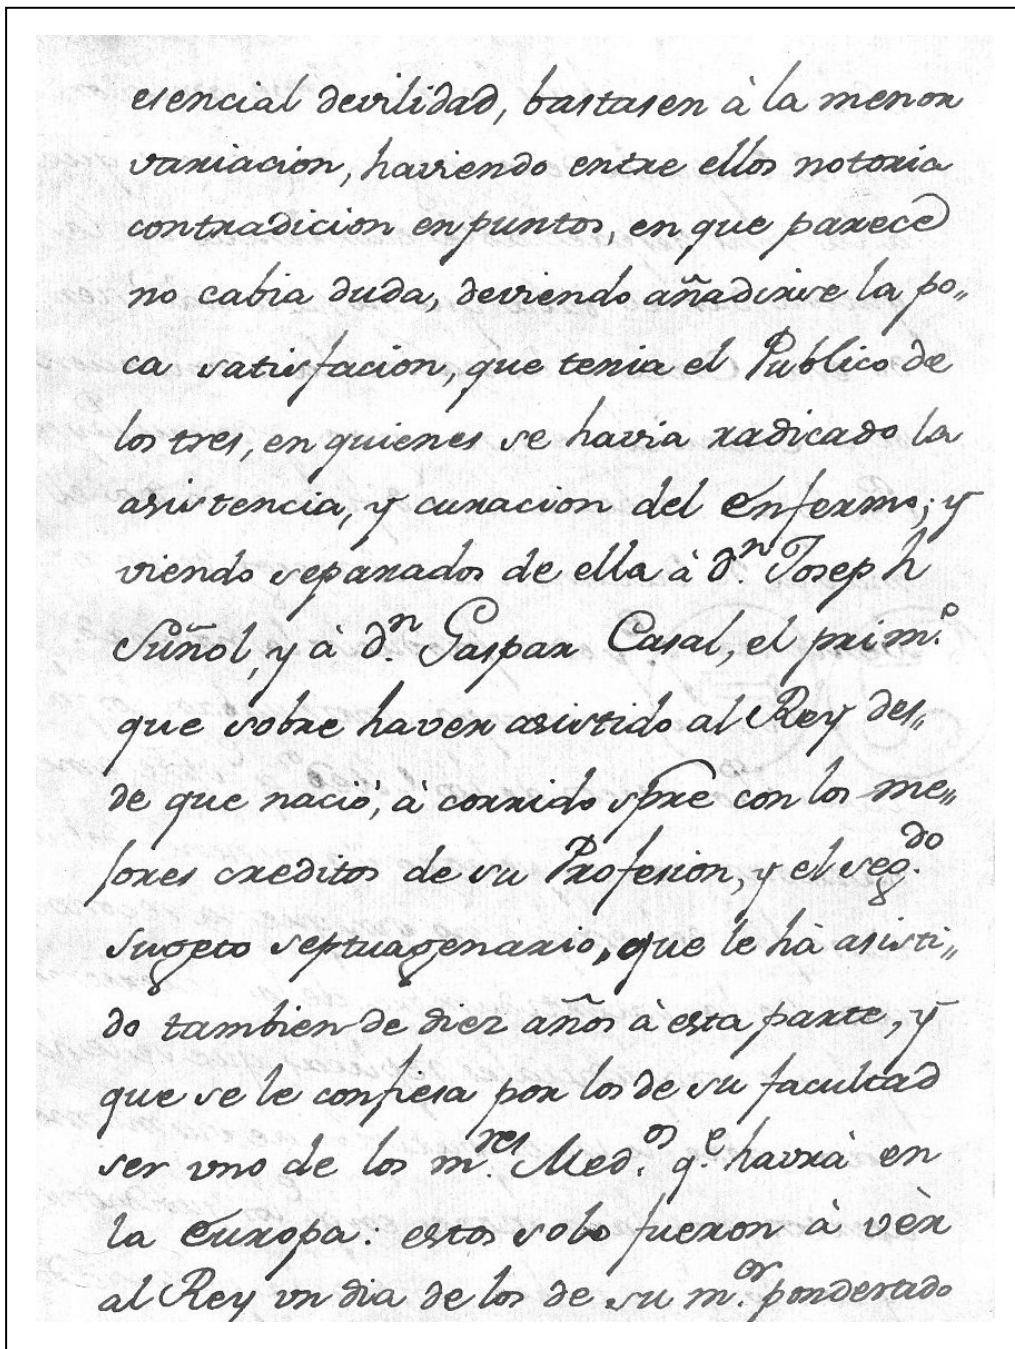 esencial devilidad, bastasen à la menor
variacion, haviendo entre ellos notoria
contradicion en puntos, en que parece
no cabia duda, deviendo añadirse la po„
ca satisfacion, que tenia el Publico de
los tres, en quienes se havia radicado la
asistencia, y curacion del enfermo; y
viendo separados de ella à d.ⁿ Joseph
Suñol, y à d.ⁿ Gaspar Casal, el prim.º
que sobre haver asistido al Rey des„
de que nació, à corrido spre con los me„
jores creditos de su Profesion, y el seg.do
sugeto septuagenario, que le hà asisti„
do tambien de diez años à esta parte, y
que se le confiesa por los de su facultad
ser vno de los m.res Med.os q.e havrà en
la Europa: estos solo fueron à vèr
al Rey vn dia de los de su m.or ponderado